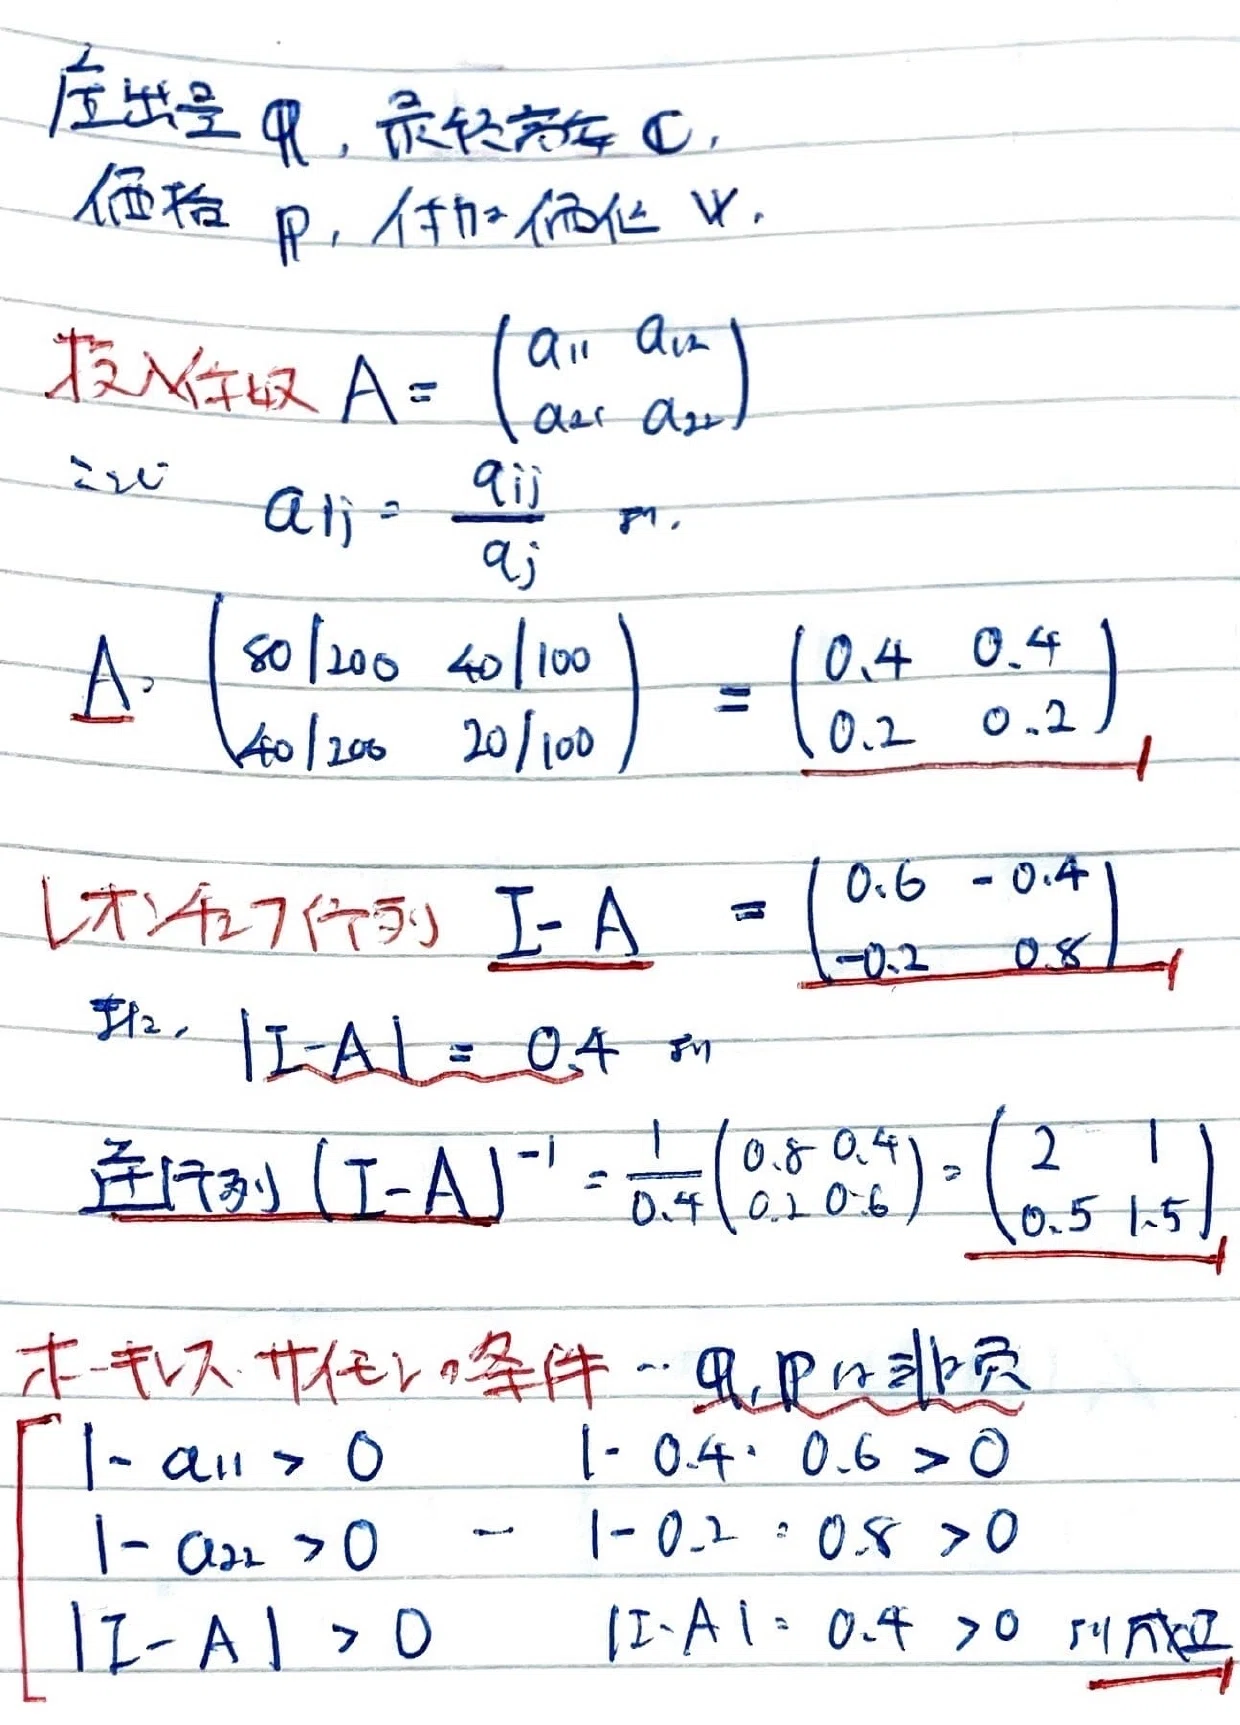 産出量 q, 最終需要 c,
価格 p, 付加価値 v.
投入係数 A = ( a11 a12
a21 a22 )
ここで aij = qij / qj より.
A = ( 80/200 40/100
40/200 20/100 ) = ( 0.4 0.4
0.2 0.2 )
レオンチェフ行列 I - A = ( 0.6 -0.4
-0.2 0.8 )
また, |I-A| = 0.4 より
逆行列 (I-A)^-1 = 1/0.4 ( 0.8 0.4
0.2 0.6 ) = ( 2 1
0.5 1.5 )
ホーキンス・サイモンの条件 … q, p は非負
1 - a11 > 0 1 - 0.4 = 0.6 > 0
1 - a22 > 0 — 1 - 0.2 = 0.8 > 0
|I - A| > 0 |I-A| = 0.4 > 0 より成立